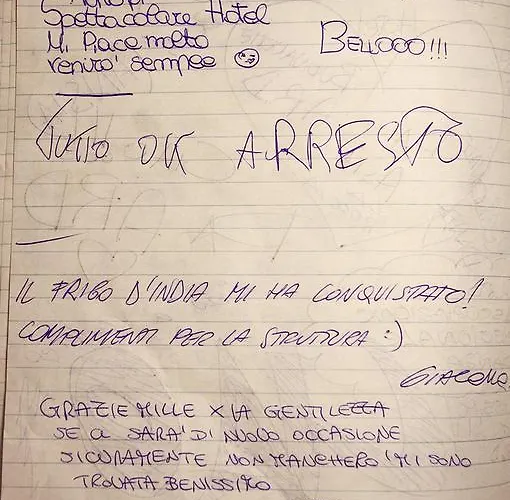 Spettacolare Hotel
Mi Piace molto
verrò sempre
BELLOOO!!!
TUTTO OK ARRESTO
IL FRIGO D'INDIA MI HA CONQUISTATO!
COMPLIMENTI PER LA STRUTTURA :)
GIACOMO
GRAZIE MILLE X LA GENTILEZZA
SE CI SARA' DI NUOVO OCCASIONE
SICURAMENTE NON MANCHERO' MI SONO
TROVATA BENISSIMO